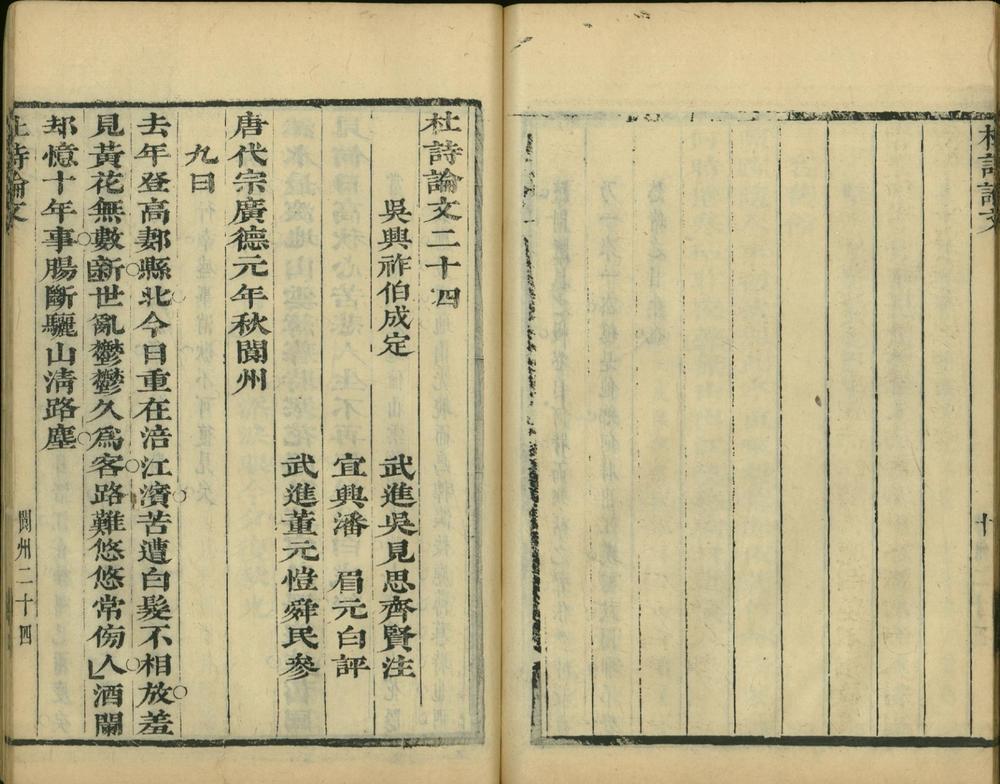 杜詩論文
十
杜詩論文二十四
吳興祚伯成定
武進吳見思齊賢注
宜興潘 眉元白評
武進董元愷舜民參
唐代宗廣德元年秋閬州
九日
去年登高郪縣北今日重在涪江濱苦遭白髮不相放羞
見黃花無數新世亂鬱鬱久爲客路難悠悠常傍人酒闌
却憶十年事腸斷驪山清路塵
杜詩論文
閬州二十四